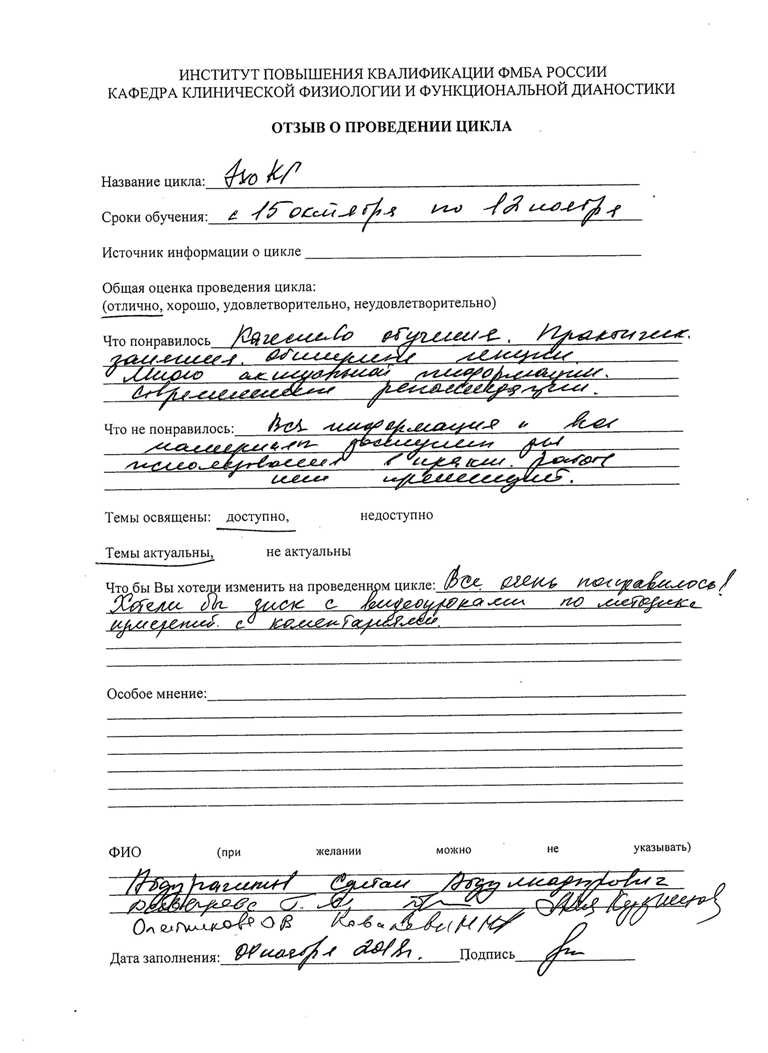 ИНСТИТУТ ПОВЫШЕНИЯ КВАЛИФИКАЦИИ ФМБА РОССИИ
КАФЕДРА КЛИНИЧЕСКОЙ ФИЗИОЛОГИИ И ФУНКЦИОНАЛЬНОЙ ДИАНОСТИКИ
ОТЗЫВ О ПРОВЕДЕНИИ ЦИКЛА
Название цикла: ЭхоКГ
Сроки обучения: с 15 октября по 12 ноября
Источник информации о цикле
Общая оценка проведения цикла:
(отлично, хорошо, удовлетворительно, неудовлетворительно)
Что понравилось Качество обучения. Практическ.
занятия. обширные лекции.
Много актуальной информации.
современные рекомендации.
Что не понравилось: Вся информация и все
материалы доступны для
использования в практ. работе
нет
Темы освящены: доступно, недоступно
Темы актуальны, не актуальны
Что бы Вы хотели изменить на проведенном цикле: Все очень понравилось!
Хотели бы диск с видеоуроками по методике
измерений. с коментариями.
Особое мнение:
ФИО (при желании можно не указывать)
Султан
О В Ковалевы
Дата заполнения: ноября 2018г. Подпись